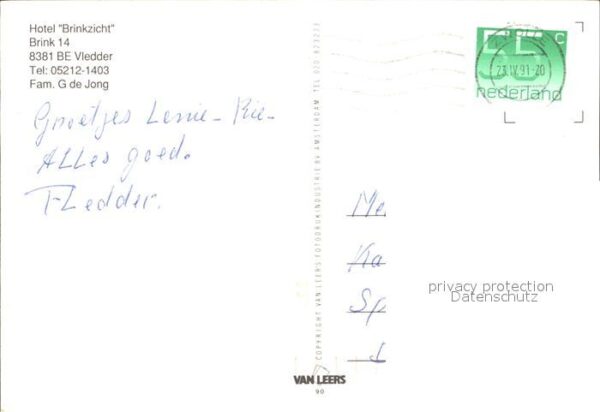 Hotel "Brinkzicht"
Brink 14
8381 BE Vledder
Tel: 05212-1403
Fam. G de Jong
Groetjes Lenie - Rie -
ALLes goed.
FLedder.
COPYRIGHT VAN LEER'S FOTODRUKINDUSTRIE BV AMSTERDAM
VAN LEERS
90
C
55
23.IV.91-20
nederland
Me
Ka
Sp
privacy protection
Datenschutz